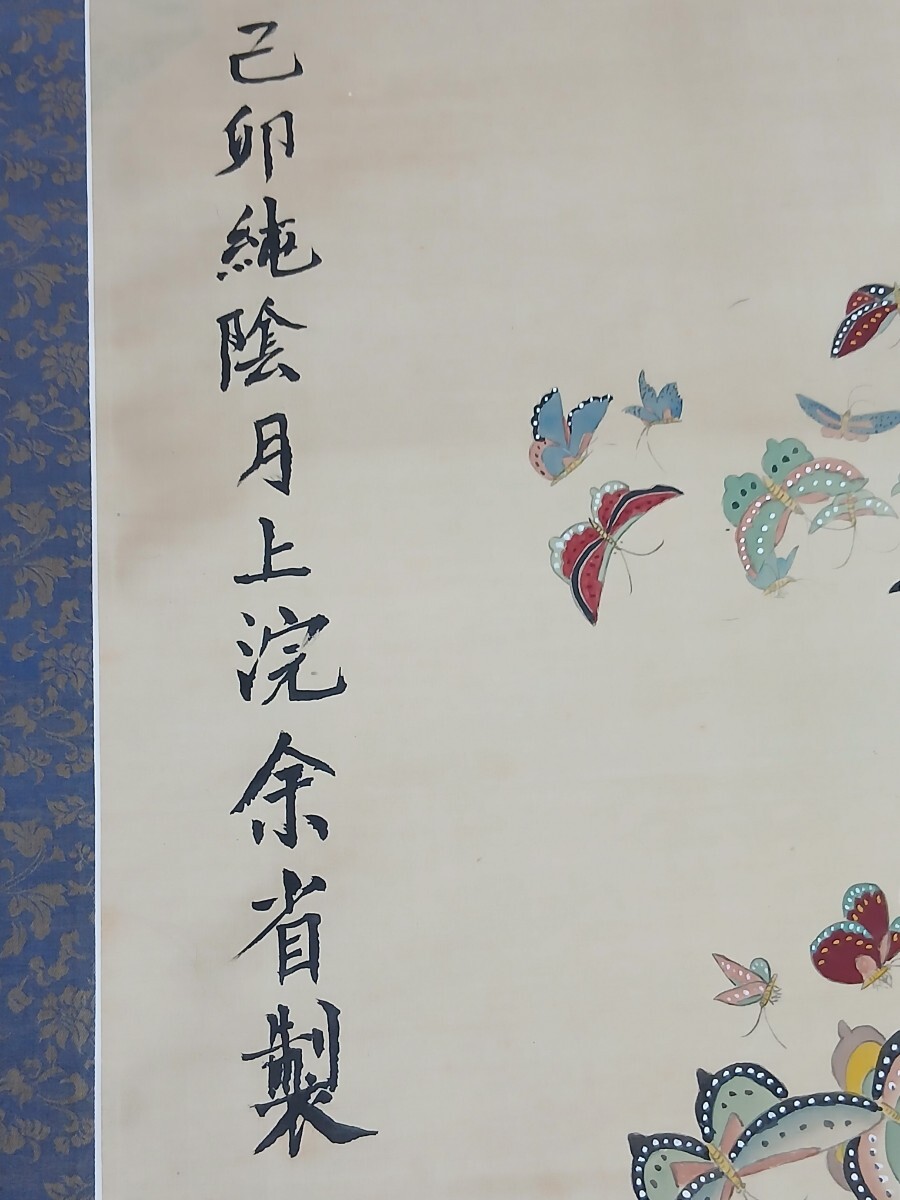 己卯純陰月上浣余省製